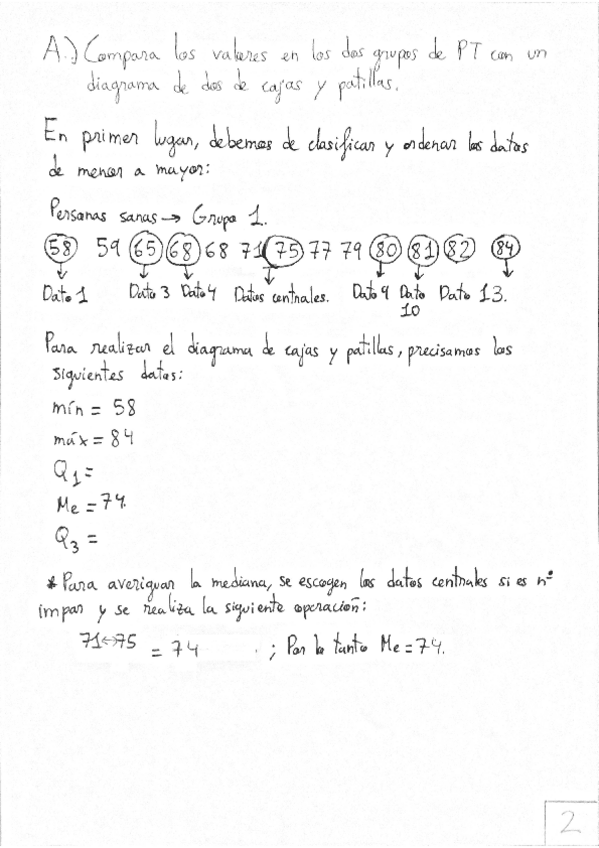 A.) Compara los valores en los dos grupos de PT con un
diagrama de dos de cajas y patillas.
En primer lugar, debemos de clasificar y ordenar los datos
de menor a mayor:
Personas sanas → Grupo 1.
58 59 65 68 68 71 75 77 79 80 81 82 84
Dato 1 Dato 3 Dato 4 Datos centrales. Dato 9 Dato 10 Dato 13.
Para realizar el diagrama de cajas y patillas, precisamos los
siguientes datos:
mín = 58
máx = 84
Q1 =
Me = 74.
Q3 =
* Para averiguar la mediana, se escogen los datos centrales si es nº
impar y se realiza la siguiente operación:
71↔75 = 74 . ; Por lo tanto Me = 74.
2